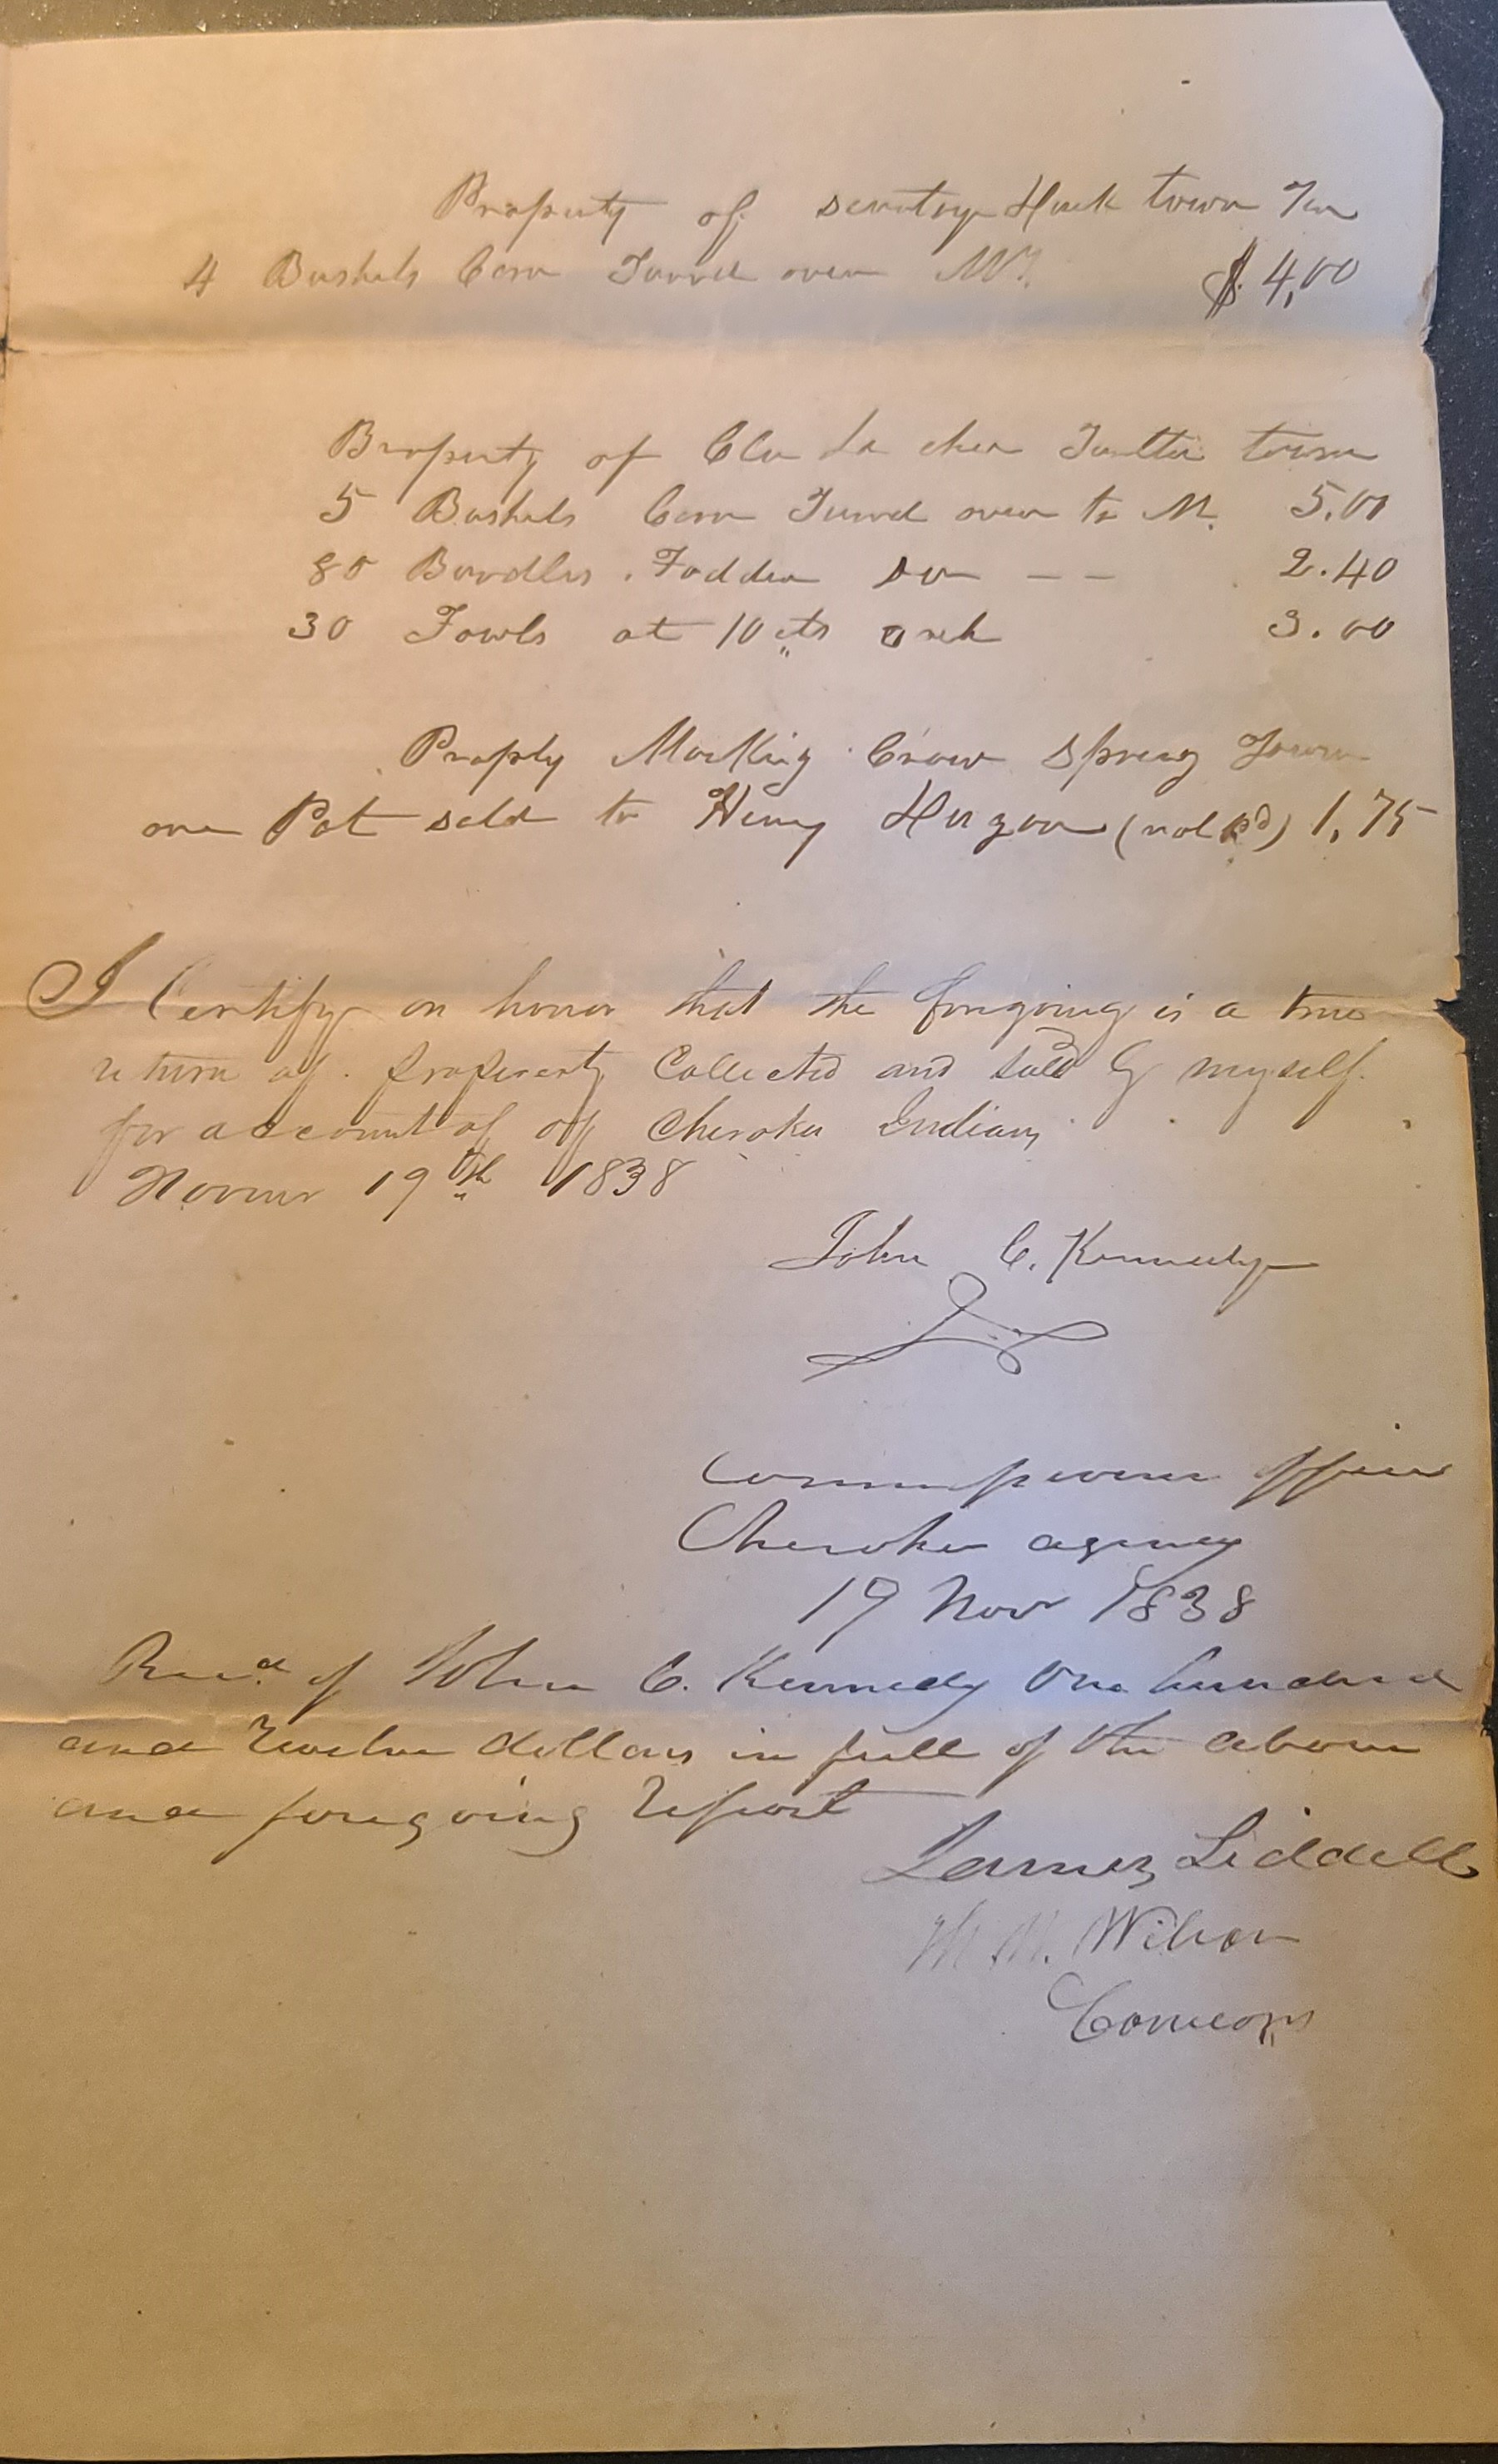 Property of Hunk town Ten
4 Bushels Corn Turned over $4,00
Property of Clu la che Turtle town
5 Bushels Corn Turned over to M. 5.00
80 Bundles Fodder Do — — 2.40
30 Fowls at 10 cts each 3.00
Proply Mocking Crow Spring Town
one Pot sold to Henry (not pd) 1,75
I Certify on honor that the foregoing is a true
return of property Collected and sold by myself
for account of of Cherokee Indians
19th 1838
John C. Kennedy
Commissioners office
Cherokee agency
19 Nov 1838
Recd. of John C. Kennedy One hundred
and Twelve dollars in full of the above
and foregoing Report
James Liddell
Wilson